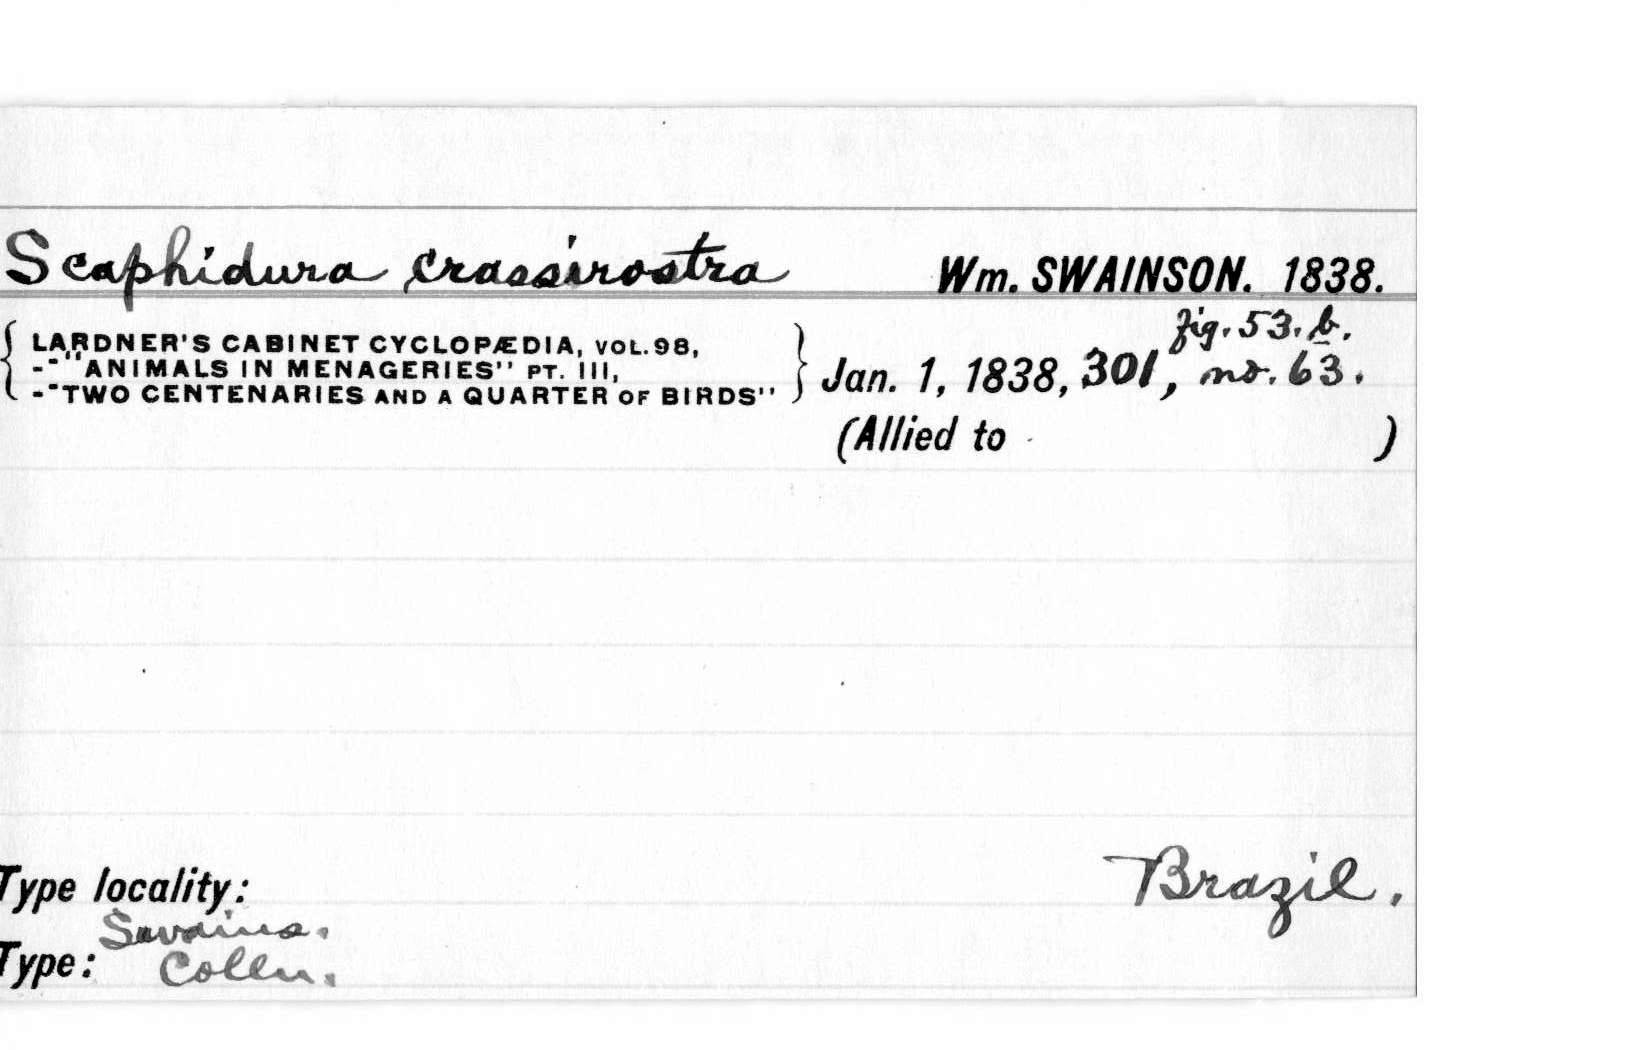 Scaphidura crassirostra Wm. SWAINSON. 1838.
fig. 53. b.
LARDNER'S CABINET CYCLOPÆDIA, VOL. 98,
-"ANIMALS IN MENAGERIES" PT. III,
-"TWO CENTENARIES AND A QUARTER OF BIRDS"
Jan. 1, 1838, 301, no. 63.
(Allied to )
Brazil.
Type locality:
Swains.
Type: Colln.